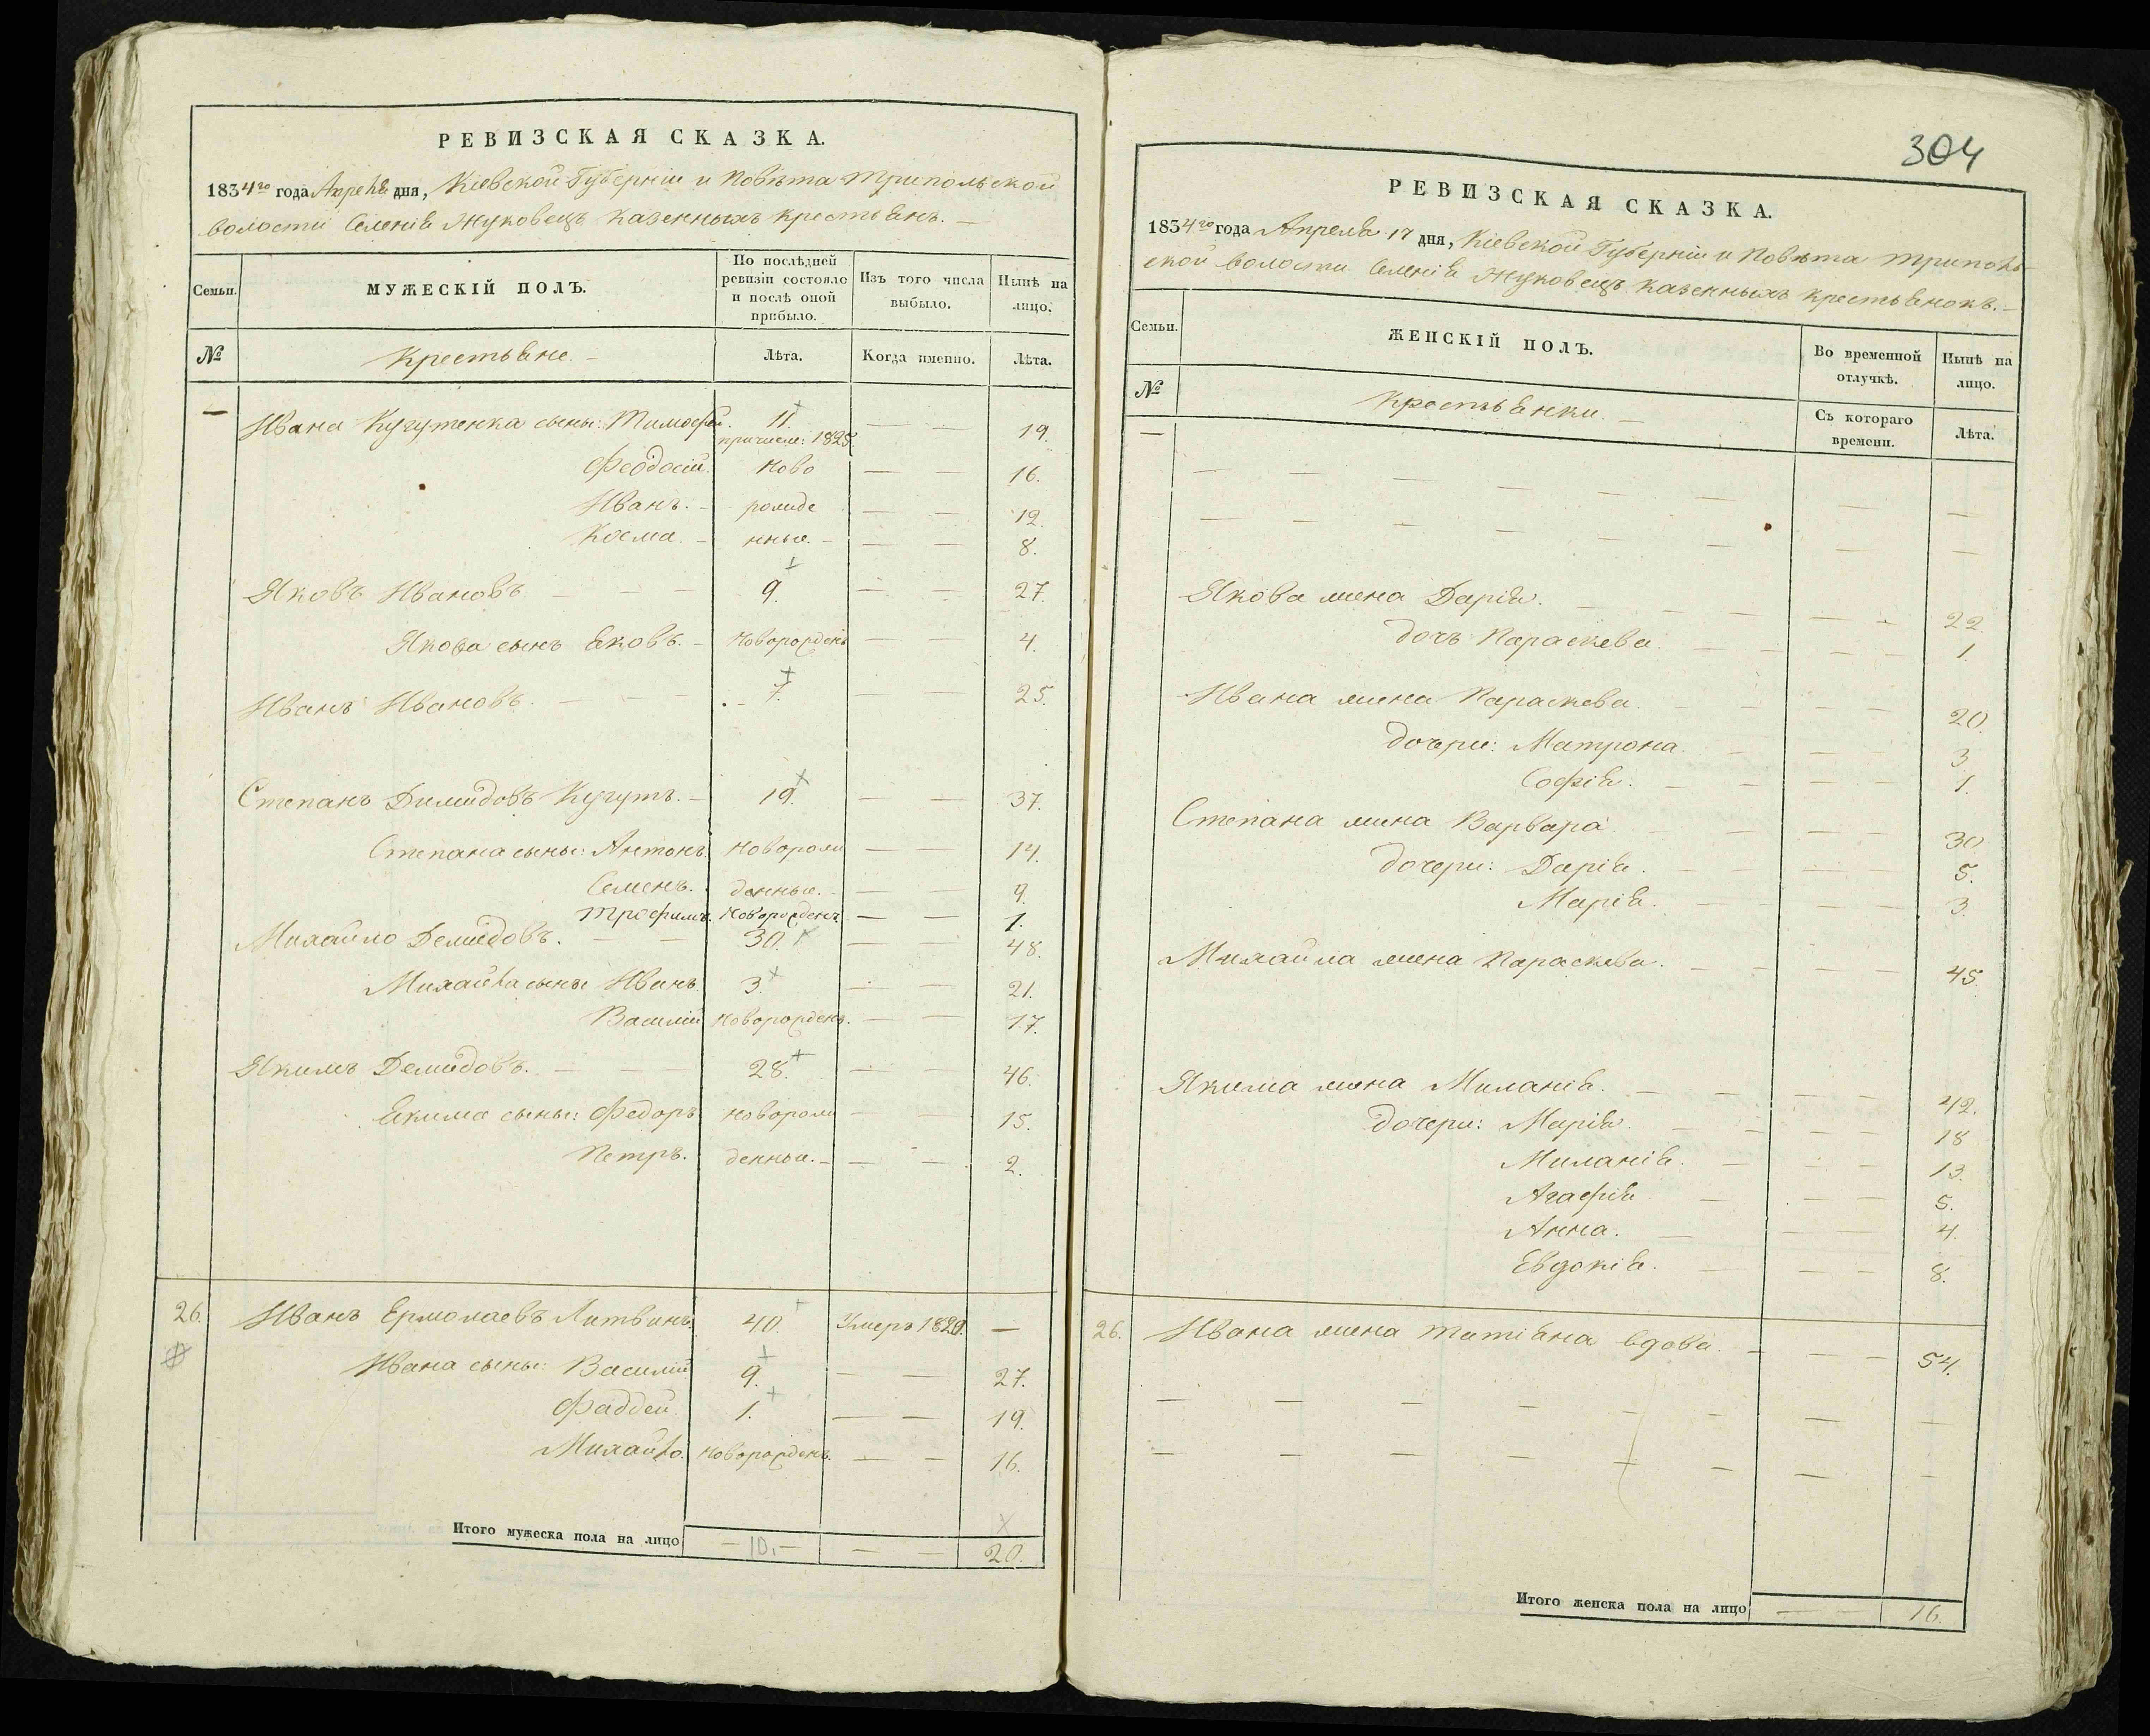 РЕВИЗСКАЯ СКАЗКА.
1834го года Апреля дня, Кіевской Губерніи и Повѣта Трипольской
волости Селенія Жуковецъ Казенныхъ Крестьянъ. —
Семьи.
МУЖЕСКІЙ ПОЛЪ.
По послѣдней ревизіи состояло и послѣ оной прибыло.
Изъ того числа выбыло.
Нынѣ на лицо.
№
Крестьяне. —
Лѣта.
Когда именно.
Лѣта.
— Ивана Кугутенка сыны: Тимофей. 11. — — 19.
причисл: 1825.
Феодосій. Ново — — 16.
Иванъ. — рожде — — 12.
Косма. — нные. — — — 8.
Яковъ Ивановъ — — — 9. — — 27.
Якова сынъ Яковъ. — Новорожденъ — — 4.
Иванъ Ивановъ. — — — 7. — — 25.
Степанъ Димидовъ Кугутъ. — 19. — — 37.
Степана сыны: Антонъ. Новорож — — 14.
Семенъ. денные. — — — 9.
Трофимъ. Новорожденъ — — 1.
Михайло Демидовъ. — — 30. — — 48.
Михайла сыны Иванъ 3. — — 21.
Василій Новорожденъ. — — 17.
Якимъ Демидовъ. — — 28. — — 46.
Якима сыны: Федоръ Новорож — — 15.
Петръ. денные. — — — 2.
26. Иванъ Ермолаевъ Литвинъ. 40. Умеръ 1829. —
Ивана сыны: Василій 9. — — 27.
Фаддей 1. — — 19.
Михайло. Новорожденъ. — — 16.
Итого мужеска пола на лицо — 10. — — — 20.
304
РЕВИЗСКАЯ СКАЗКА.
1834го года Апреля 17 дня, Кіевской Губерніи и Повѣта Триполь-
ской волости Селенія Жуковецъ Казенныхъ Крестьянокъ. —
Семьи.
ЖЕНСКІЙ ПОЛЪ.
Во временной отлучкѣ.
Нынѣ на лицо.
№
Крестьянки. —
Съ котораго времени.
Лѣта.
—
Якова жена Дарія. — — — — — 22.
дочь Параскева — — — — 1.
Ивана жена Параскева. — — — — 20.
дочери: Матрона. — — 3
Софія. — — — — 1.
Степана жена Варвара — — — — 30
дочери: Дарія. — — — — 5.
Марія. — — — — 3.
Михайла жена Параскева. — — — — 45.
Якима жена Миланія. — — — — 42.
дочери: Марія. — — — — 18
Миланія. — — — 13.
Агафія — — — 5.
Анна. — — — 4.
Евдокія. — — — 8.
26. Ивана жена Татіана вдова. — — — 54.
Итого женска пола на лицо — — 16.